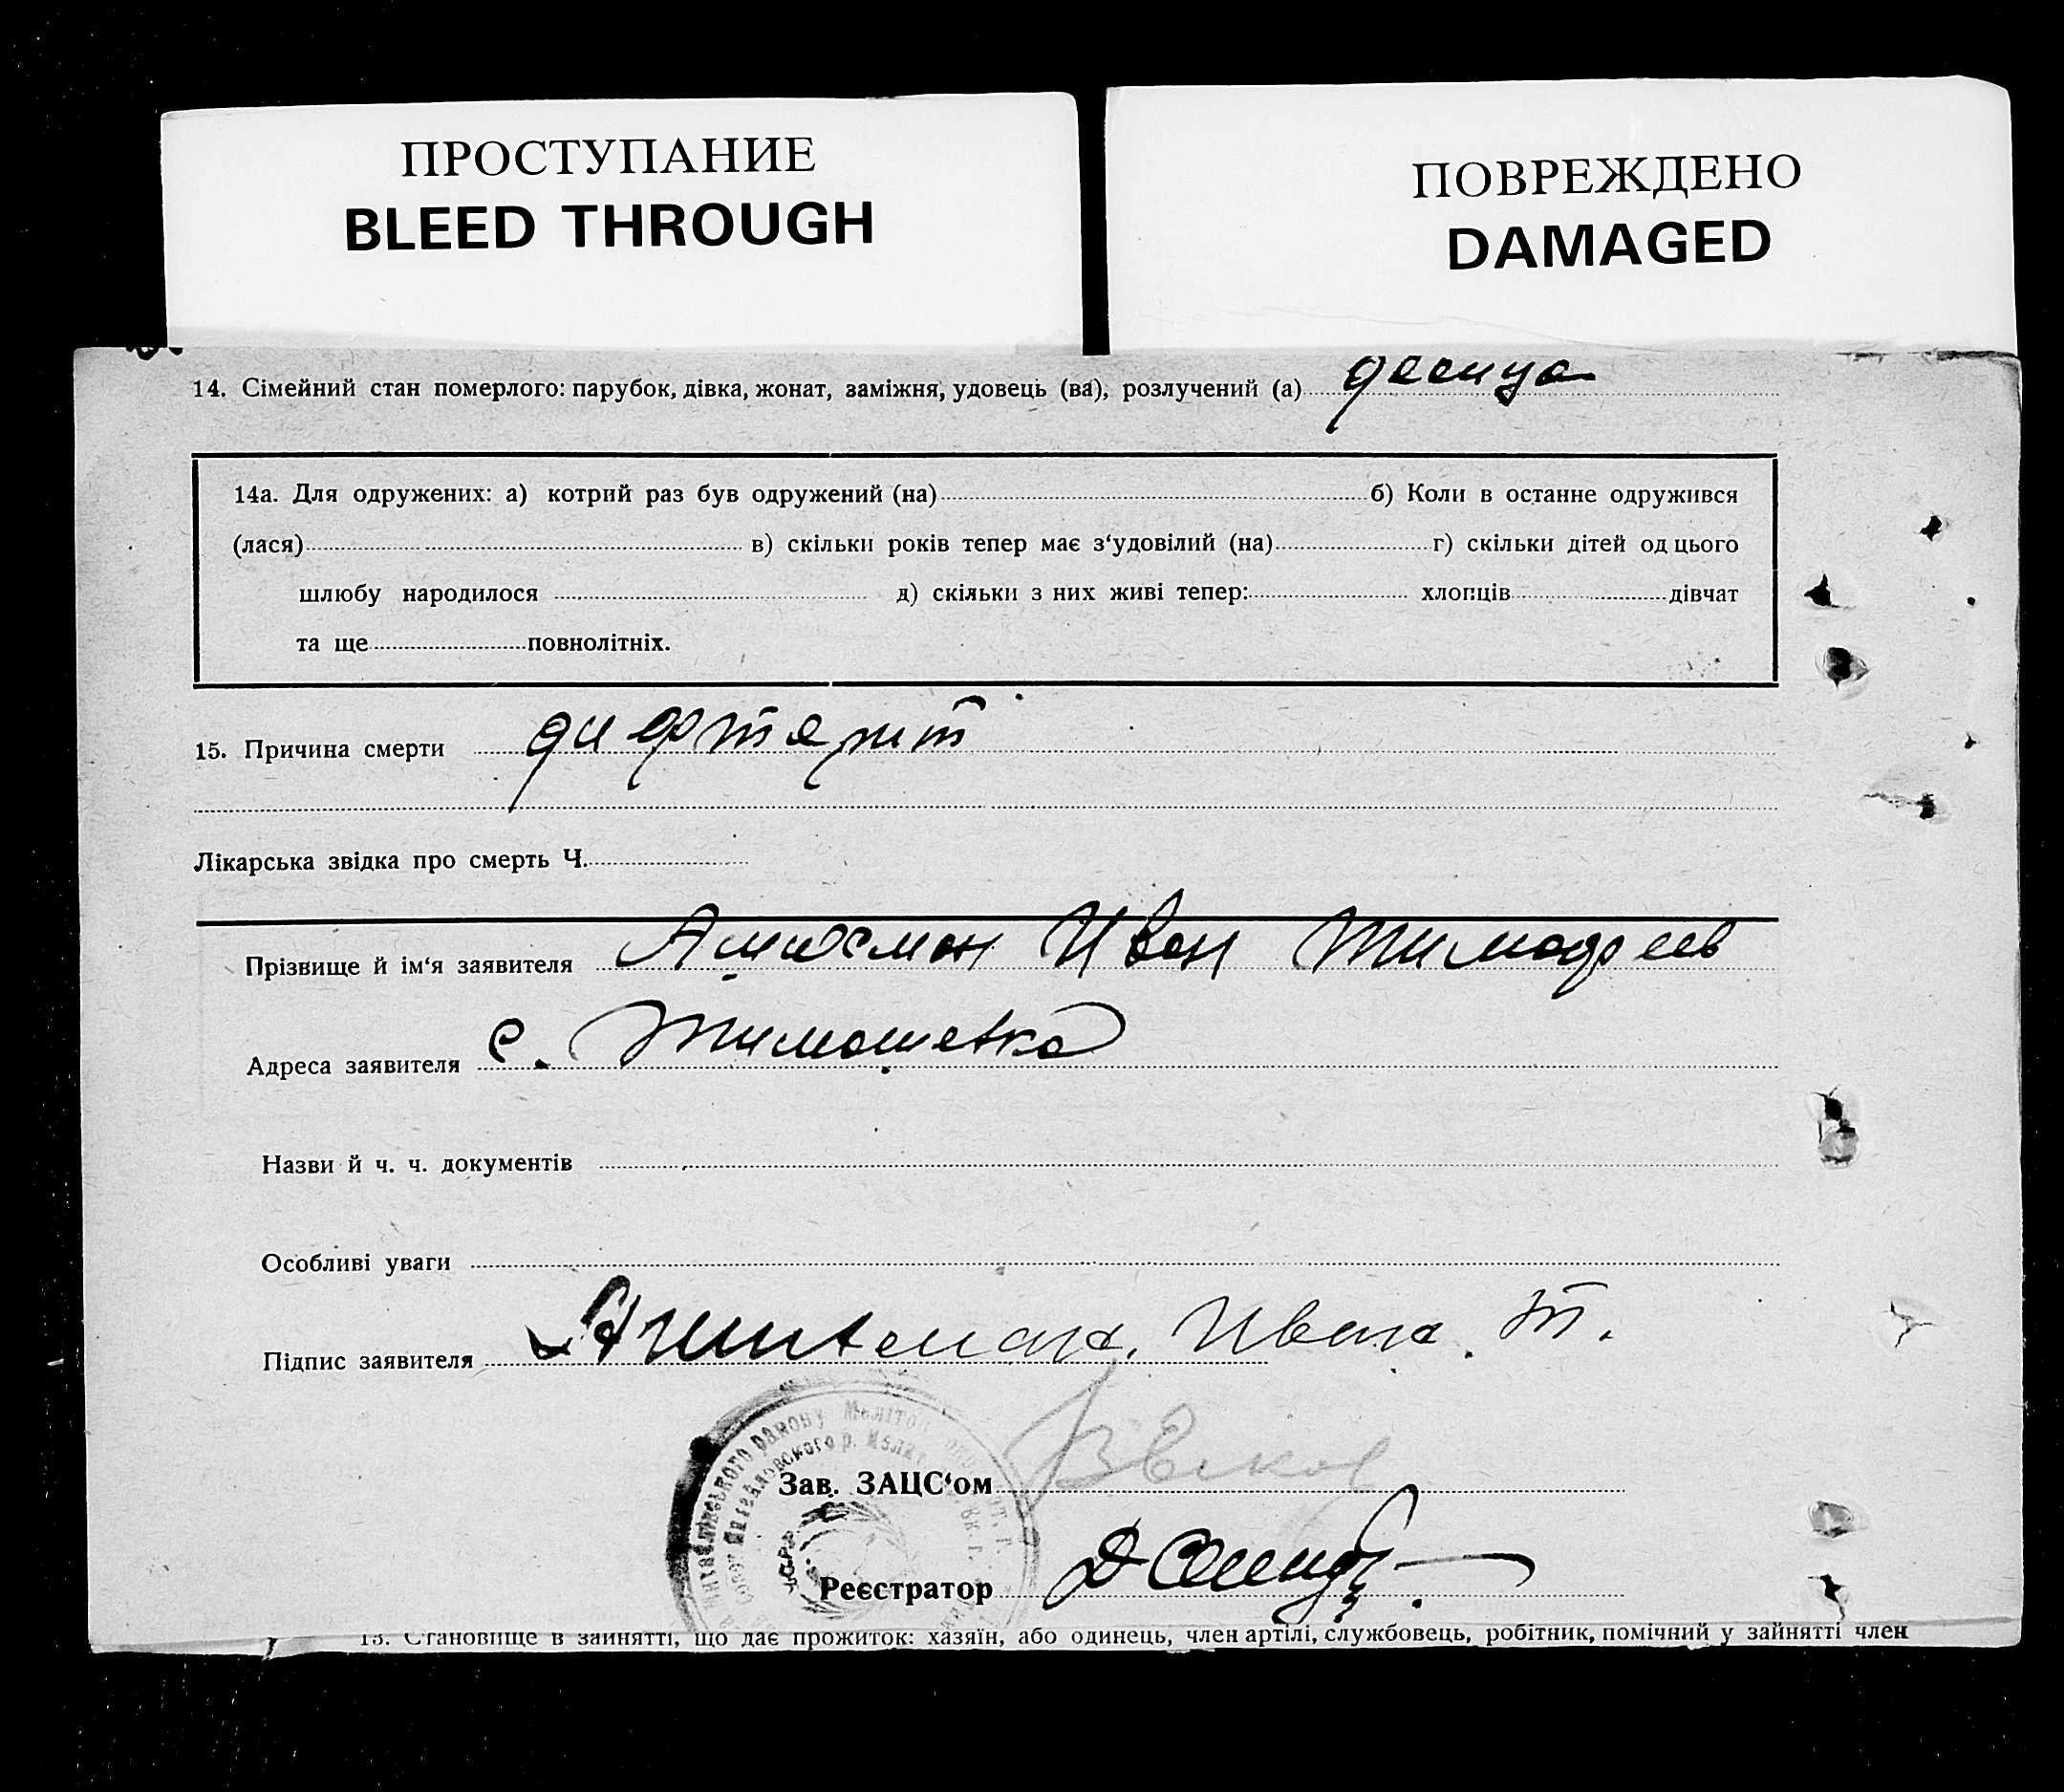 ПРОСТУПАНИЕ
BLEED THROUGH
ПОВРЕЖДЕНО
DAMAGED
14. Сімейний стан померлого: парубок, дівка, жонат, заміжня, удовець (ва), розлучений (а)
14а. Для одружених: а) котрий раз був одружений (на) б) Коли в останне одружився
(лася) в) скільки років тепер має з‘удовілий (на) г) скільки дітей од цього
шлюбу народилося д) скільки з них живі тепер: хлопців дівчат
та ще повнолітніх.
15. Причина смерти дифтерит
Лікарська звідка про смерть Ч.
Прізвище й ім‘я заявителя Иван Тимофеев
Адреса заявителя с. Тимошевка
Назви й ч. ч. документів
Особливі уваги
Підпис заявителя Иван Т.
Зав. ЗАЦС‘ом
Реєстратор
13. Становище в зайнятті, що дає прожиток: хазяїн, або одинець, член артілі, службовець, робітник, помічний у зайнятті член